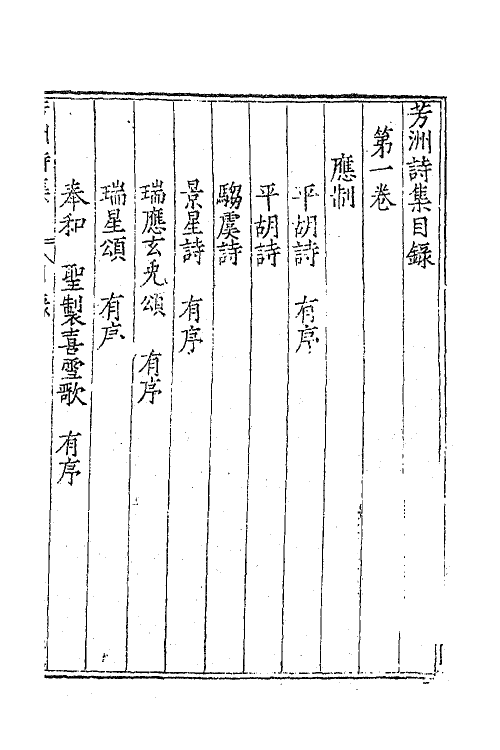 芳洲詩集目錄
第一卷
應制
平胡詩　有序
平胡詩
騶虞詩
景星詩　有序
瑞應玄兎頌　有序
瑞星頌　有序
奉和　聖製喜雪歌　有序